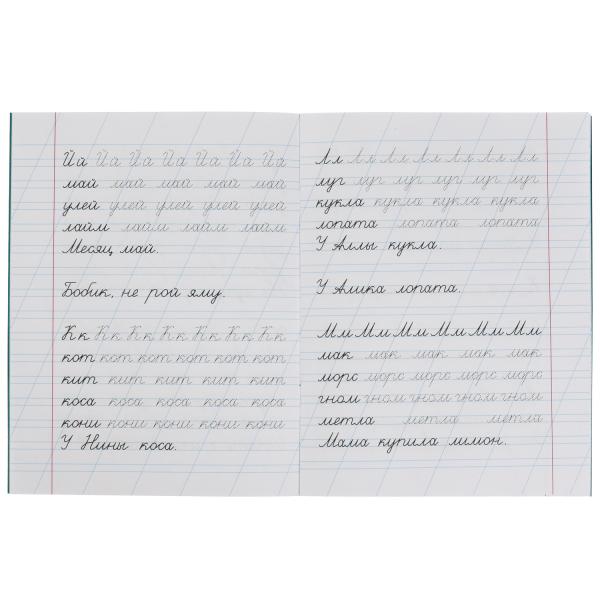 Йй Йй Йй Йй Йй Йй Йй
май май май май май
улей улей улей улей улей
лайм лайм лайм лайм лайм
Месяц май.
Бобик, не рой яму.
Кк Кк Кк Кк Кк Кк Кк
кот кот кот кот кот кот
кит кит кит кит кит
коса коса коса коса коса
кони кони кони кони кони
У Нины коса.
Лл Лл Лл Лл Лл Лл Лл
луг луг луг луг луг луг
кукла кукла кукла кукла
лопата лопата лопата
У Аллы кукла.
У Алика лопата.
Мм Мм Мм Мм Мм Мм
мак мак мак мак мак
морс морс морс морс
гном гном гном гном гном
метла метла метла
Мама купила лимон.